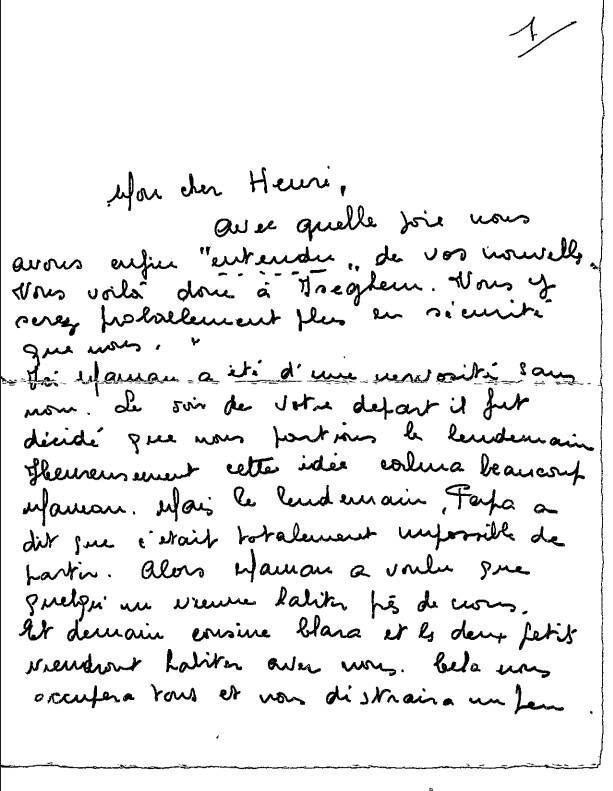 1
Mon cher Henri,
avec quelle joie nous
avons enfin "entendu" de vos nouvelles.
Vous voilà donc à Iseghem. Vous y
serez probablement plus en sécurité
que nous.
Ici Maman a été d'une nervosité sans
nom. Le soir de votre depart il fut
décidé que nous partions le lendemain
Heureusement cette idée calma beaucoup
Maman. Mais le lendemain, Papa a
dit que c'était totalement impossible de
partir. Alors Maman a voulu que
quelqu'un vienne habiter près de nous.
Et demain cousine Clara et les deux petits
viendront habiter avec nous. Cela nous
occupera tous et nous distraira un peu.